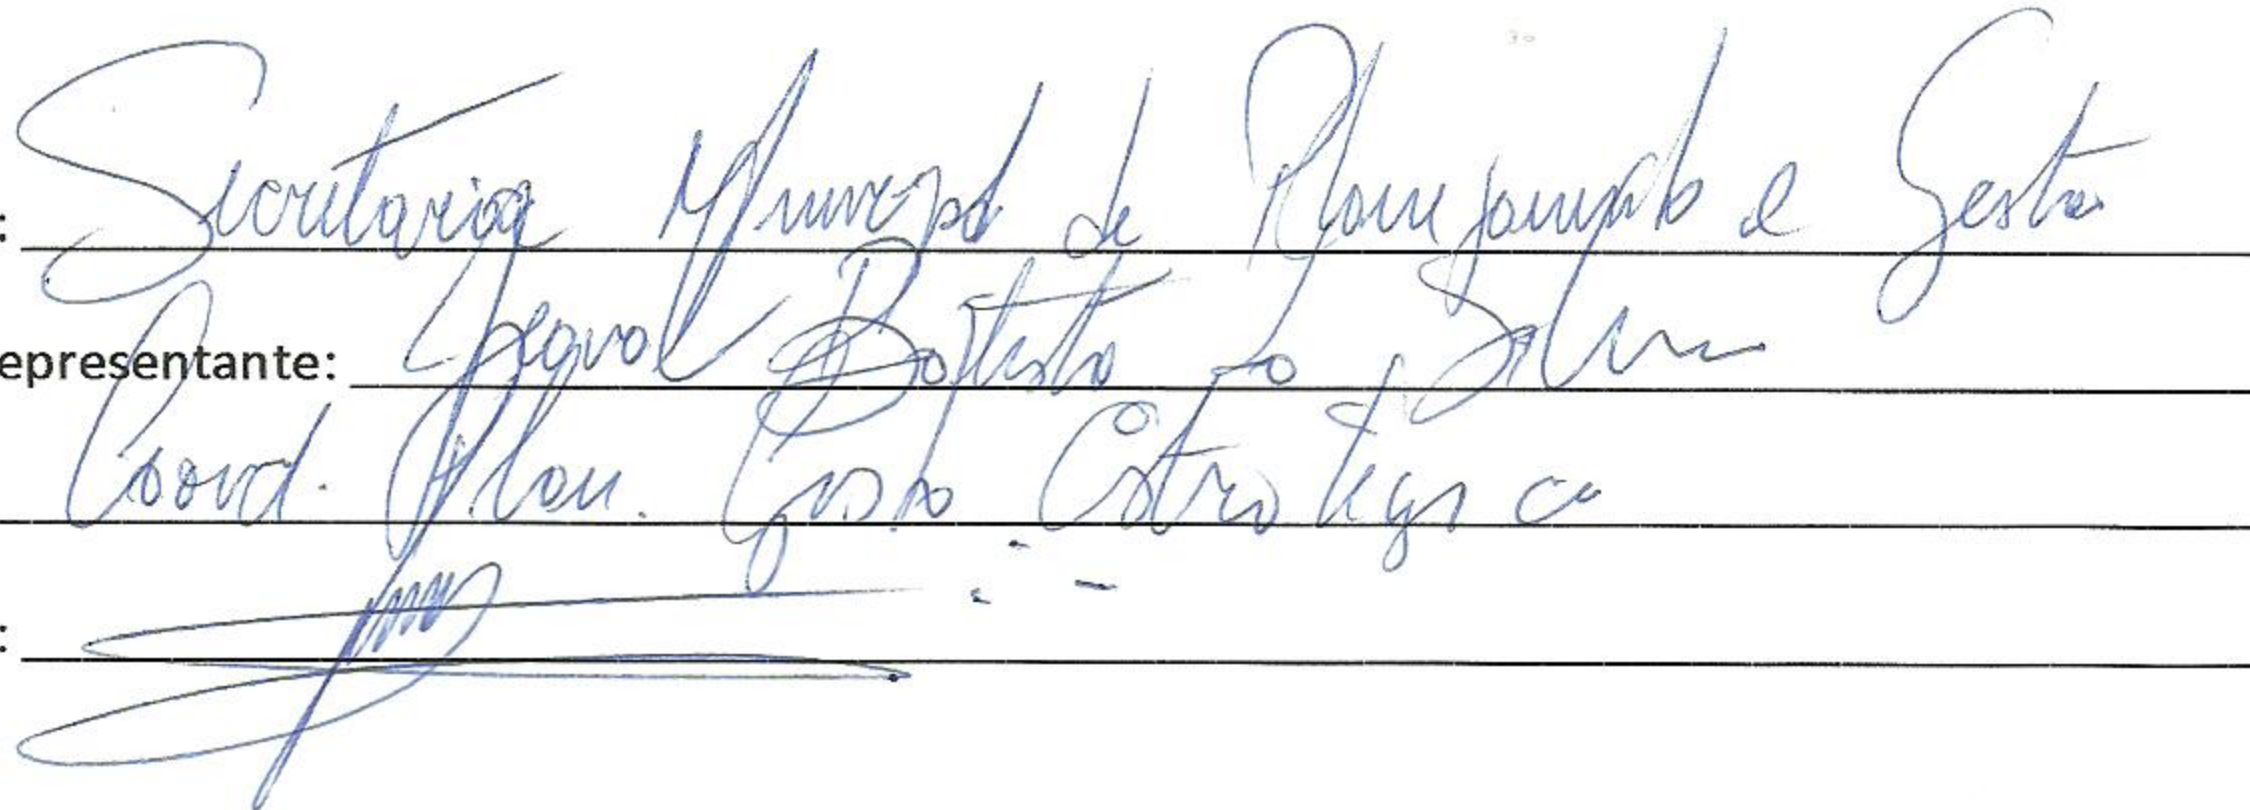 : Secretaria Municipal de Planejamento e Gestão
epresentante: Batista da Silva
Coord. Plan. Gestão Estratégica
: